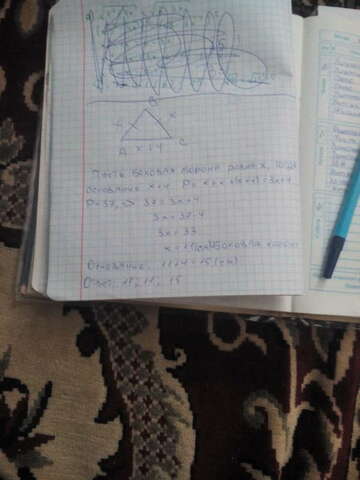 B
x x
A x+4 C
Пусть боковая сторона равна x, тогда
основание x+4. P = x+x+(x+4)=3x+4
P=37, => 37=3x+4
3x=37-4
3x=33
x=11(см) боковая
Основание: 11+4=15(см)
Ответ: 11, 11, 15